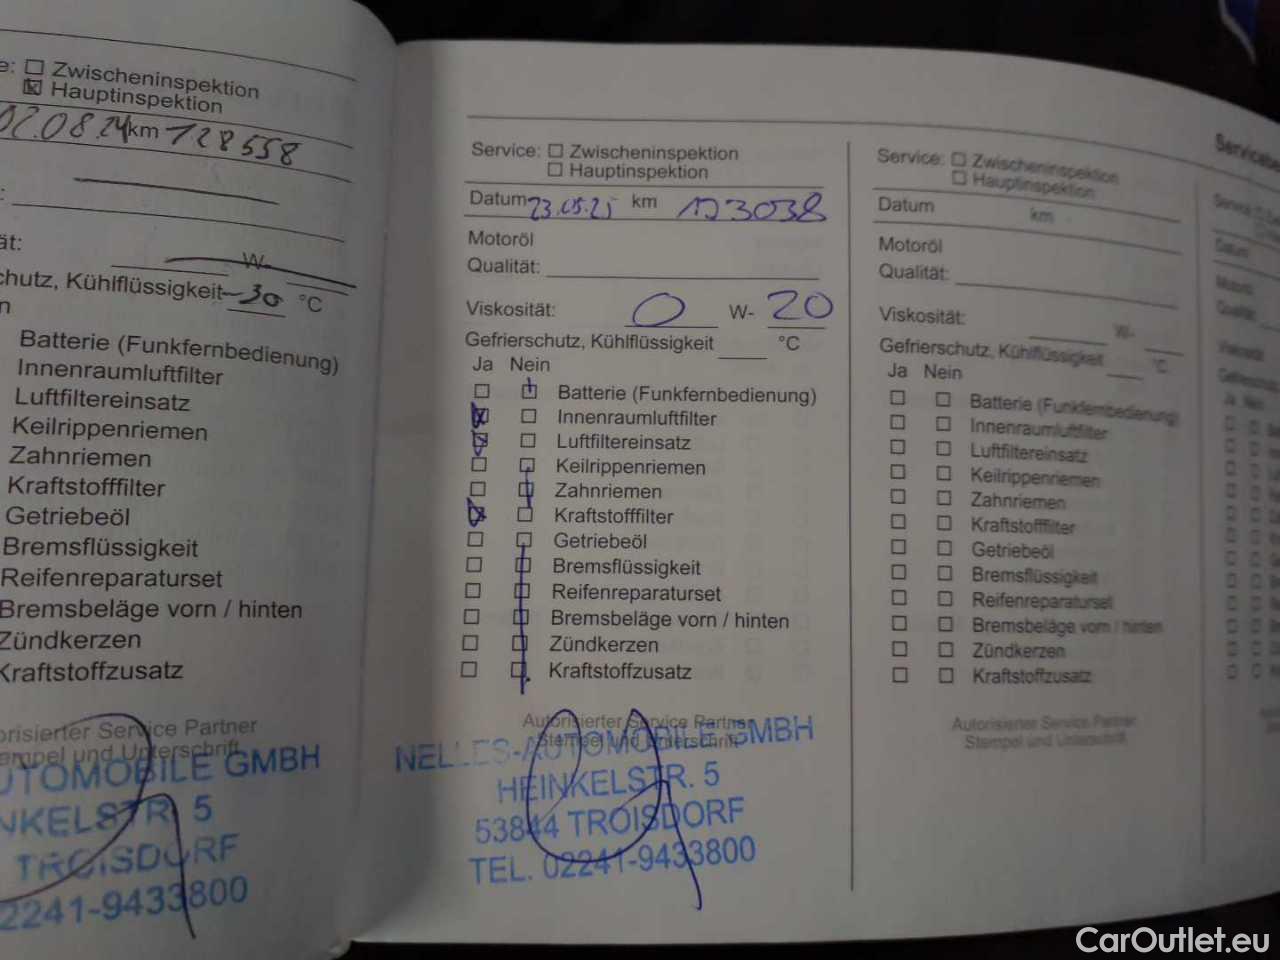 e: Zwischeninspektion
Hauptinspektion
02.08.24 km 128558
:
ät:
W-
chutz, Kühlflüssigkeit -30 °C
n
Batterie (Funkfernbedienung)
Innenraumluftfilter
Luftfiltereinsatz
Keilrippenriemen
Zahnriemen
Kraftstofffilter
Getriebeöl
Bremsflüssigkeit
Reifenreparaturset
Bremsbeläge vorn / hinten
Zündkerzen
Kraftstoffzusatz
orisierter Service Partner
empel und Unterschrift
UTOMOBILE GMBH
NKELSTR. 5
TROISDORF
2241-9433800
Service: Zwischeninspektion
Hauptinspektion
Datum 23.05.25 km 173038
Motoröl
Qualität:
Viskosität: 0 W- 20
Gefrierschutz, Kühlflüssigkeit °C
Ja Nein
Batterie (Funkfernbedienung)
Innenraumluftfilter
Luftfiltereinsatz
Keilrippenriemen
Zahnriemen
Kraftstofffilter
Getriebeöl
Bremsflüssigkeit
Reifenreparaturset
Bremsbeläge vorn / hinten
Zündkerzen
Kraftstoffzusatz
Autorisierter Service Partner
Stempel und Unterschrift
NELLES-AUTOMOBILE GMBH
HEINKELSTR. 5
53844 TROISDORF
TEL. 02241-9433800
Service: Zwischeninspektion
Hauptinspektion
Datum km
Motoröl
Qualität:
Viskosität: W-
Gefrierschutz, Kühlflüssigkeit °C
Ja Nein
Batterie (Funkfernbedienung)
Innenraumluftfilter
Luftfiltereinsatz
Keilrippenriemen
Zahnriemen
Kraftstofffilter
Getriebeöl
Bremsflüssigkeit
Reifenreparaturset
Bremsbeläge vorn / hinten
Zündkerzen
Kraftstoffzusatz
Autorisierter Service Partner
Stempel und Unterschrift
CarOutlet.eu